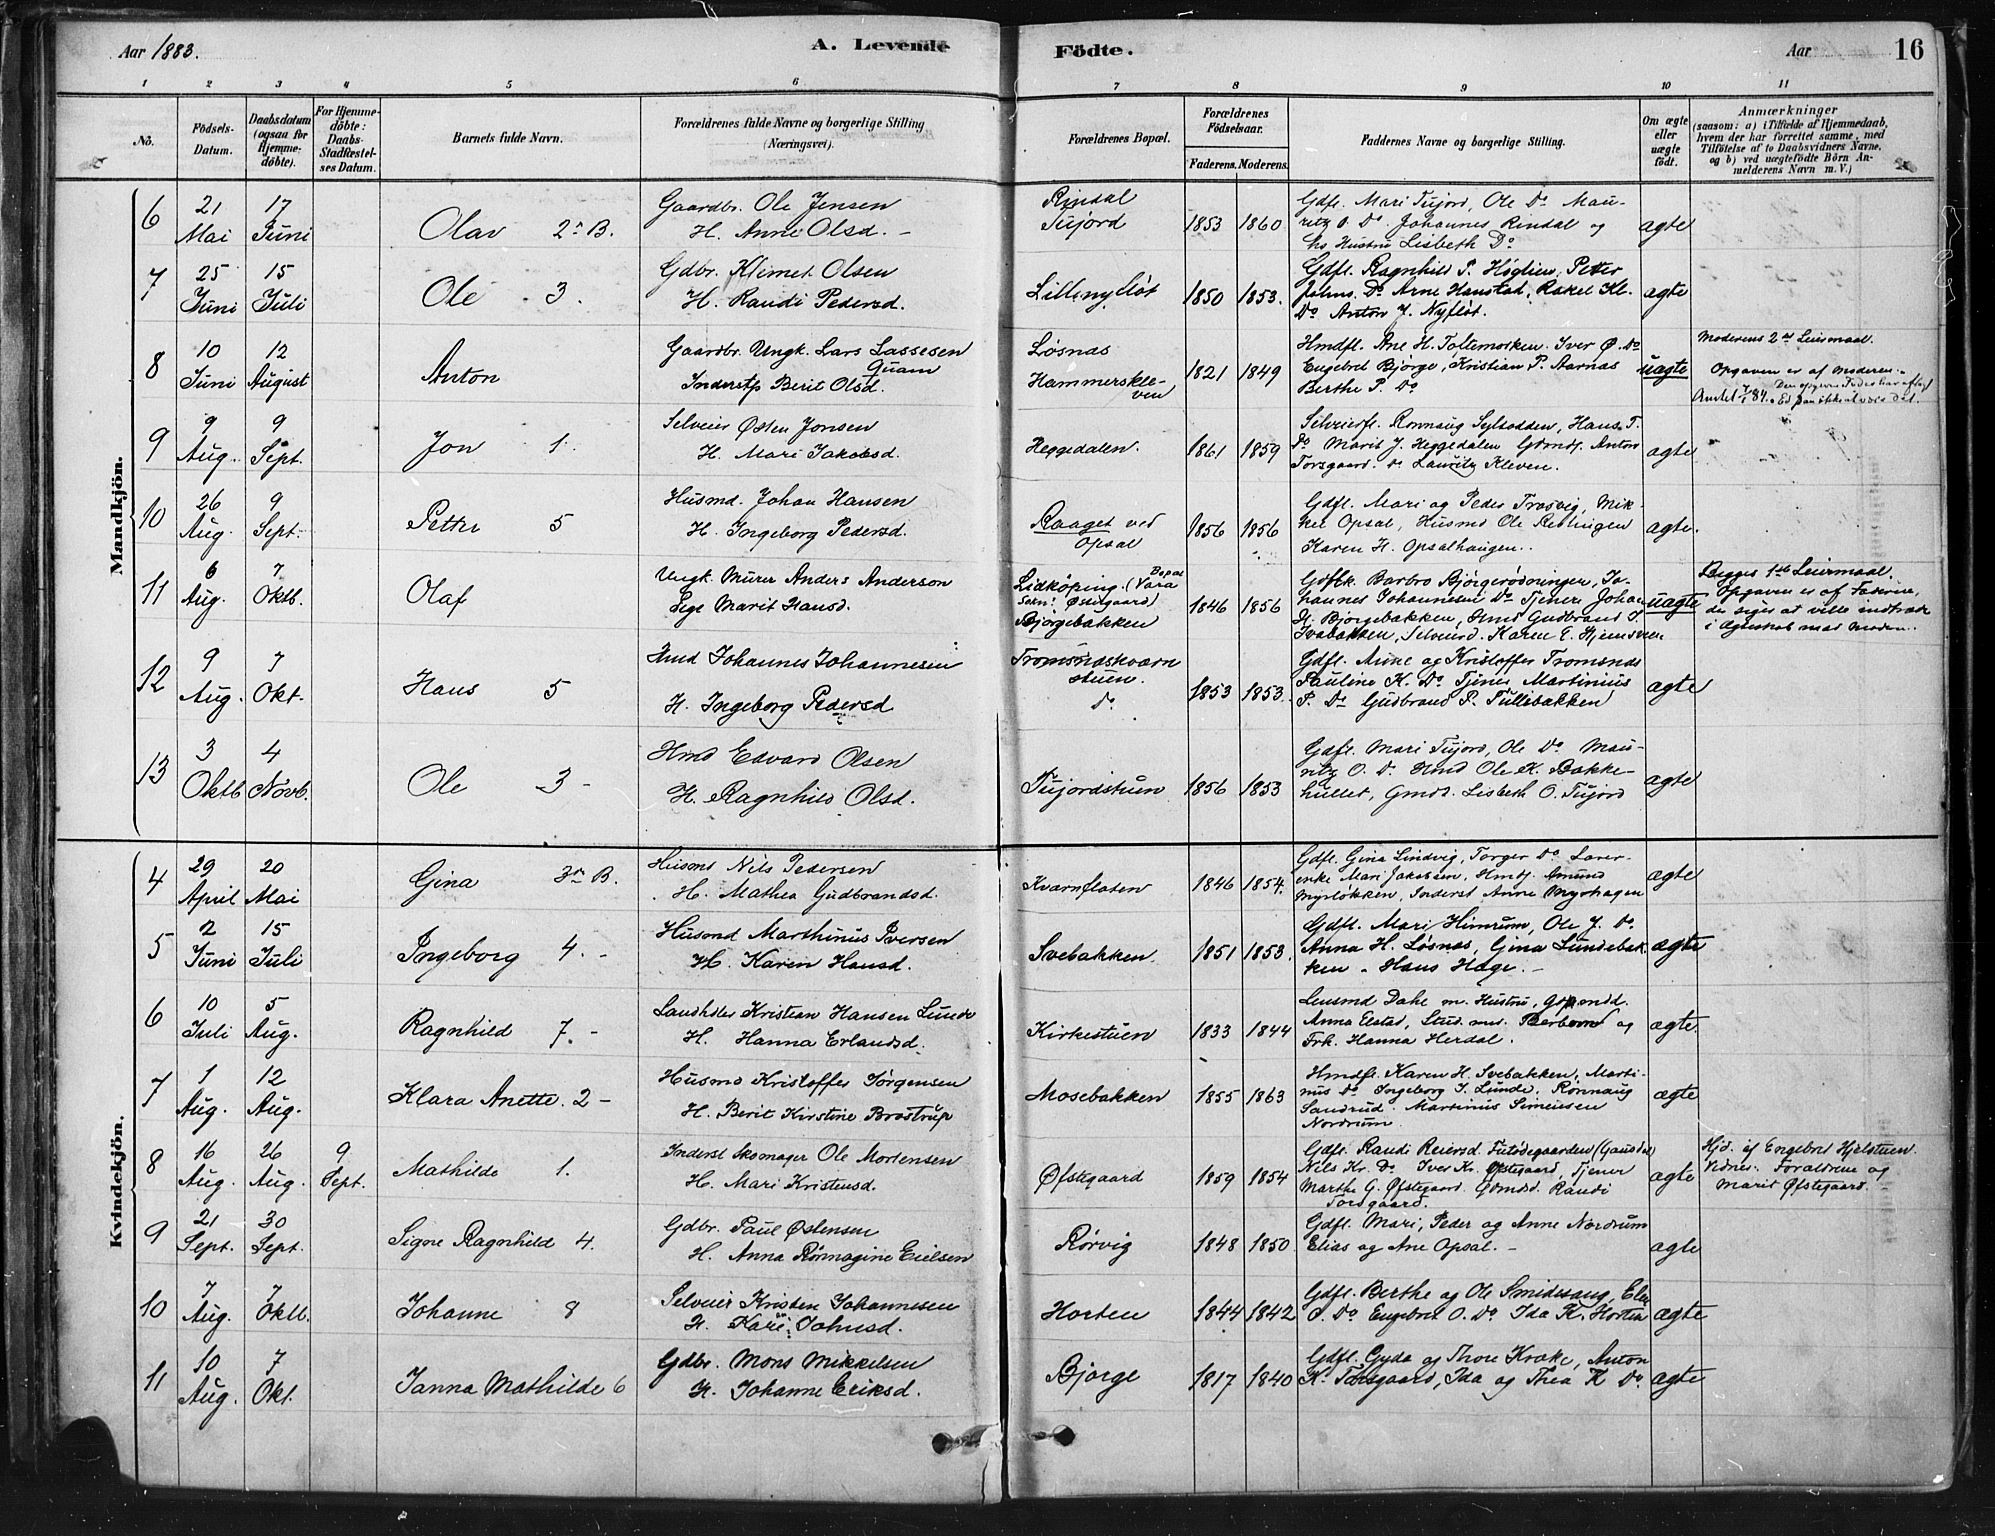 Aar 1883.
A. Levende Födte.
Aar
16
1 2 3 4 5 6 7 8 9 10 11
No.
Födsels-Datum.
Daabsdatum (ogsaa for Hjemmedöbte).
For Hjemmedöbte: Daabs-Stadfæstelses Datum.
Barnets fulde Navn.
Forældrenes fulde Navne og borgerlige Stilling (Næringsvei).
Forældrenes Bopæl.
Forældrenes Födselsaar.
Faderens. Moderens.
Faddernes Navne og borgerlige Stilling.
Om ægte eller uægte födt.
Anmærkninger
(saasom: a) i Tilfælde af Hjemmedaab, hvem der har forrettet samme, med Tilföielse af to Daabsvidners Navne, og b) ved uægtefödte Börn Anmelderens Navn m. V.)
Mandkjön.
6
21 Mai
17 Juni
Olav 2den B.
Gaardbr. Ole Jensen
H. Anne Olsd. –
Rindal
Tujord
1853 1860
Gdfl. Mari Tujord, Ole Do Mau-
ritz O. Do Johannes Rindal og
hs Hustru Lisbeth Do
ægte
7
25 Juni
15 Juli
Ole 3.
Gdbr. Klemet Olsen
H. Randi Pedersd.
Lillenyfløt
1850 1853.
Gdfl. Ragnhild P. Høglien, Petter
Johns. Do Arne Hanstad, Rakel Kl.
Do Anton J. Nyfløt.
ægte
8
10 Juni
12 August
Anton
Gaardbr. Ungk. Lars Lassesen
Quam
Inderst p. Berit Olsd.
Løsnæs
Hammerskle-
ven
1821 1849
Hmdfl. Ane H. Toltemosken. Iver Ø. Do
Engebret Bjørge, Kristian P. Aarnæs
Berthe P. Do
uægte
Moderens 2det Leiermaal.
Opgaven er af Moderen.
9
9 Aug.
9 Sept.
Jon 1.
Selveier Østen Jonsen
H. Mari Jakobsd.
Heggedalen.
1861 1859
Selveierfl. Rønnaug Sylsodden, Hans T.
Do Marit J. Heggedalen Gdmdsf. Anton
Torsgaard. do Lauritz Kleven.
ægte
10
26 Aug.
9 Sept.
Petter 5
Husmd. Johan Hansen
H. Ingeborg Pedersd.
Raaget ved
Opsal
1856 1856
Gdfl. Mari og Peder Trosvig, Mik-
kel Opsal, Husmd Ole Redlingen
Karen H. Opsalhaugen.
ægte.
11
6 Aug.
7 Oktb.
Olaf
Ungk. Murer Anders Anderson
Pige Marit Hansd.
Lidköping. (Vara
Bopæl
Sokn. Østegaard)
Bjørgebakken
1846 1856
Gdflk. Barbro Bjørgerødningen, Jo-
hannes Johannesen Do Tjener Johan
H. Bjørgebakken, Hmd Gudbrand I.
Ivabakken, Selveierd. Karen E. Hjemsveen
uægte
Begges 1ste Leiermaal.
Opgaven er af Faderen,
der siges at ville indtræde
i Ægteskab med Moderen.
12
9 Aug.
7 Okt.
Hans 5
Hmd Johannes Johannesen
H. Ingeborg Pedersd
Tromsnæskværn
stuen.
do
1853 1853.
Gdfl. Anne og Kristoffer Tromsnæs
Pauline K. Do Tjener Martinius
P. Do Gudbrand P. Tullibakken
ægte
13
3 Oktb
4 Novb.
Ole 3 –
Hmd Edvard Olsen
H. Ragnhild Olsd.
Tujordstuen
1856 1853
Gdfl. Mari Tujord, Ole Do Mau-
ritz O. Do Hmd Ole K. Bakke-
hullet, Gmds. Lisbeth O. Tujord
ægte
Kvindekjön.
4
29 April
20 Mai
Gina 3die B.
Husmd Nils Pedersen
H. Mathea Gudbrandsd.
Kværnfloten
1846 1854.
Gdfl. Gina Lindvig, Torger Do
enke Mari Jakobsen, Hmdf. Amund
Myrløkken, Inderst Anne Myrhagen
ægte
5
2 Juni
15 Juli
Ingeborg 4. –
Husmd Marthinus Iversen
H. Karen Hansd.
Svebakken.
1851 1853.
Gdfl. Mari Himrum, Ole J. Do
Anna H. Løsnæs, Gina Lundebak
ken. Hans Hage. –
ægte
6
10 Juli
5 Aug.
Ragnhild 7. –
Landhdler Kristian Hansen Lunde
H. Hanna Erlandsd.
Kirkestuen
1833 1844
Lensmd Dahe m. Hustru,
Anna Elstad, Stud. med. og
Frk. Hanna Herdal.
ægte
7
1 Aug.
12 Aug.
Klara Anette. 2 –
Husmd Kristoffer Jørgensen
H. Berit Kirstine Brostrup
Mosebakken
1855 1863
Hmdfl. Karen H. Svebakken, Marti-
nus Do Ingeborg J. Lunde. Rønnaug
Sandrud. Martinus Simensen
Nordrum.
ægte
8
16 Aug.
26 Aug.
9 Sept.
Mathilde 1.
Inderst Skomager Ole Mortensen
H. Mari Kristensd.
Øfstegaard
1859 1854
Gdfl. Randi Reiersd. Futodegaarden (Gausdal
Nils Kr. Do Iver Kr. Øfstegaard, Tjener
Marthe G. Øfstegaard. Gdmdsd. Randi
Torsgaard.
ægte
Hjd. af Engebret Hjelstuen.
Vidner. Forældrene og
Marit Øfstegaard.
9
21 Sept.
30 Sept.
Signe Ragnhild 4.
Gdbr. Paul Østensen
H. Anna Rømagine Eielsen
Rørvig
1848 1850
Gdfl. Mari, Peder og Anne Nordrum
Elias og Ane Opsal. –
ægte
10
7 Aug.
7 Oktb.
Johanne 8
Selveier Kristen Johannesen
H. Kari Johnsd.
Horten
1844 1842
Gdfl. Berthe og Ole Smidesang, Elen
O. Do Engebret O. Do Ida K. Horten
ægte
11
10 Aug.
7 Okt.
Janna Mathilde 6
Gdbr. Mons Mikkelsen
H. Johanne Eriksd.
Bjørge
1817 1840
Gdfl. Gyda og Thore Kroke, Anton
K. Torsgaard, Ida og Thea K Do
ægte